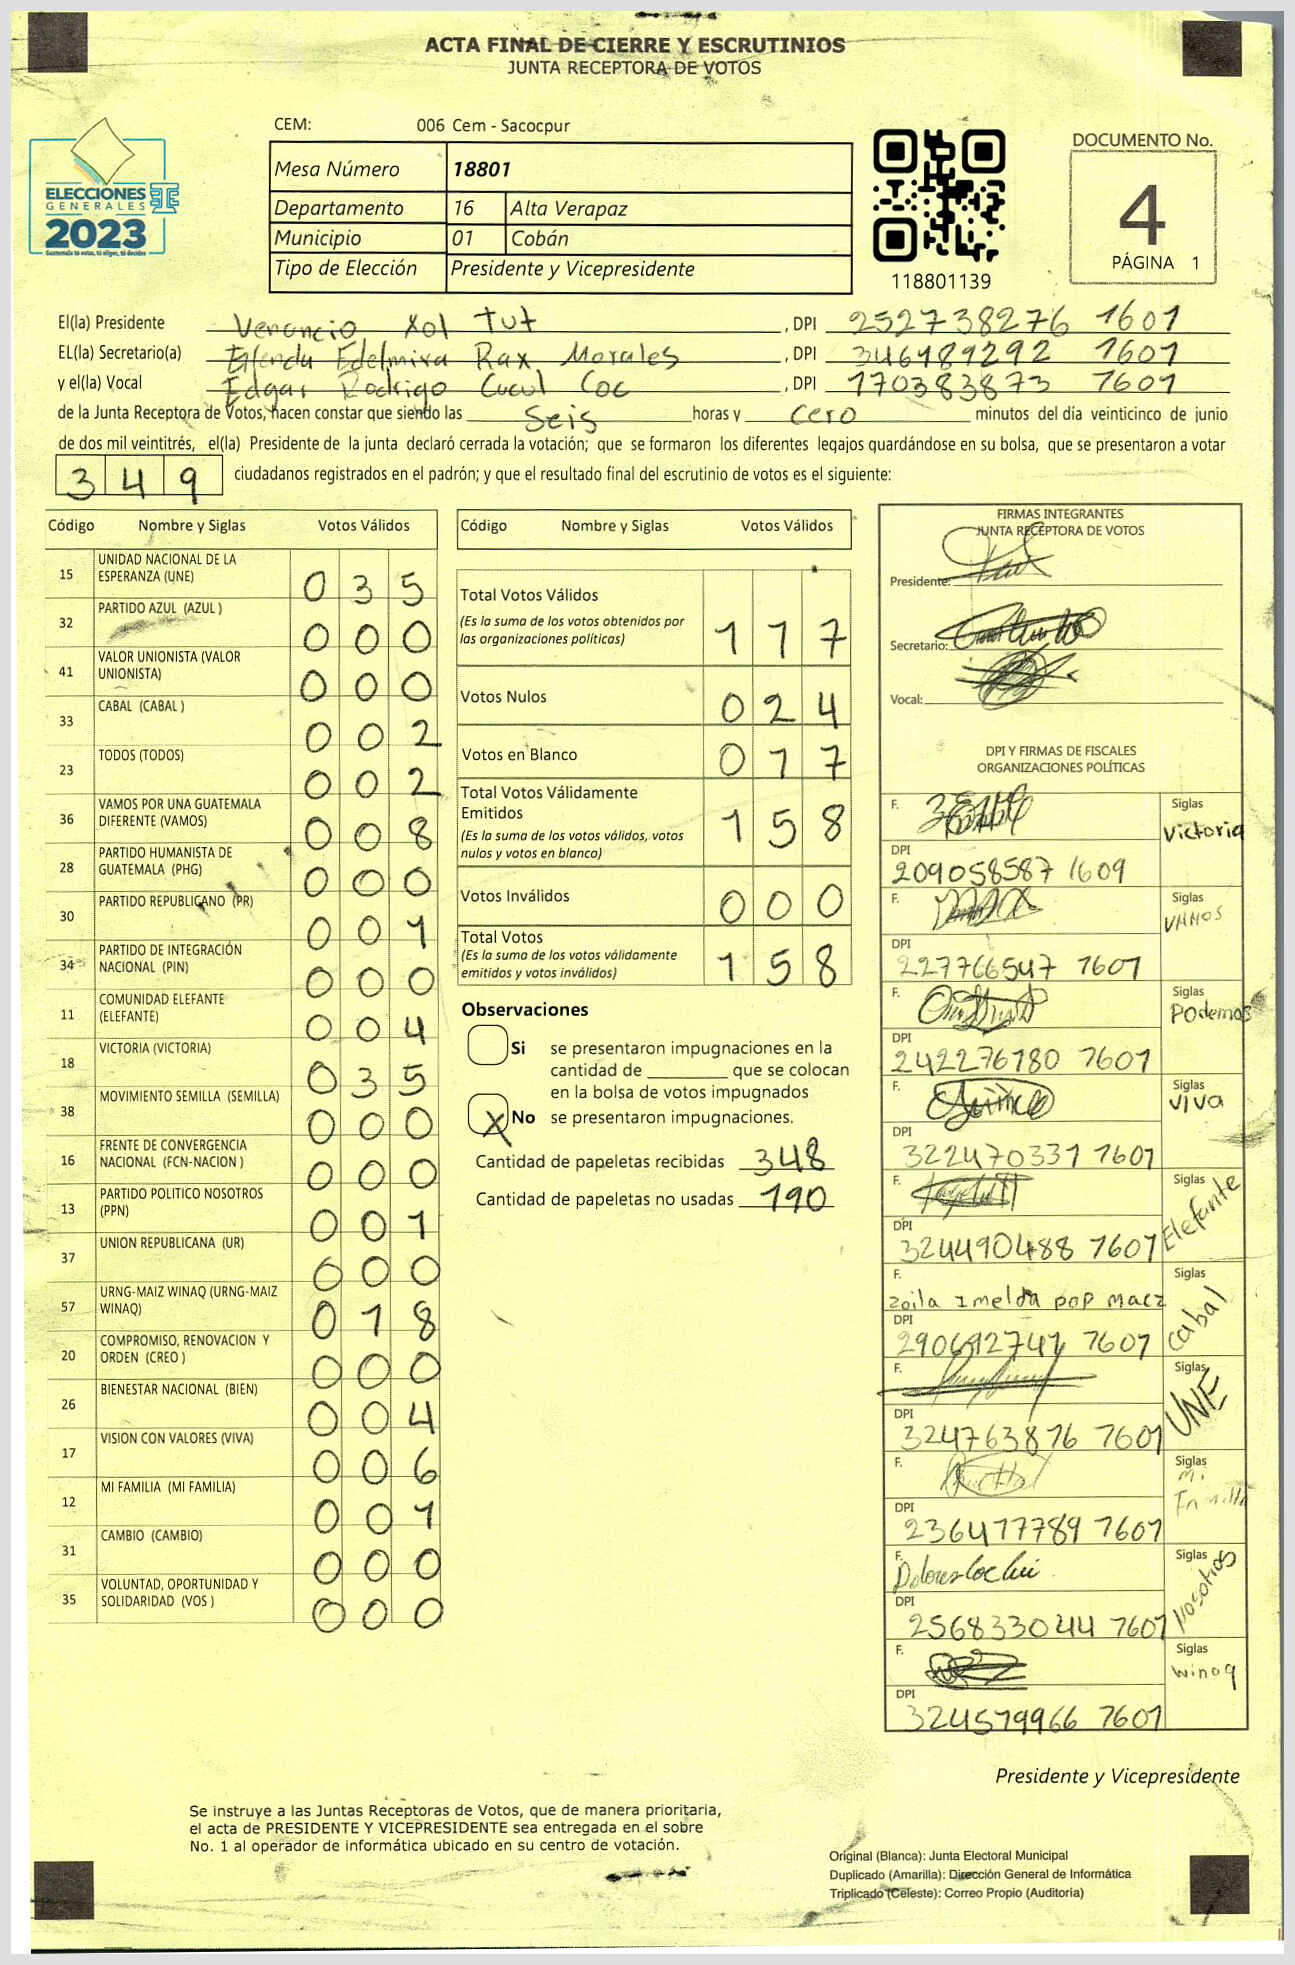 ACTA FINAL DE CIERRE Y ESCRUTINIOS
JUNTA RECEPTORA DE VOTOS
CEM: 006 Cem - Sacocpur
ELECCIONES
GENERALES
2023
Guatemala tú votas, tú eliges, tú decides
Mesa Número 18801
Departamento 16 Alta Verapaz
Municipio 01 Cobán
Tipo de Elección Presidente y Vicepresidente
118801139
DOCUMENTO No.
4
PÁGINA 1
El(la) Presidente Venancio Xol Tut , DPI 252738276 1601
EL(la) Secretario(a) Edelmira Rax Morales , DPI 346189292 1601
y el(la) Vocal Edgar Rodrigo Cucul Coc , DPI 170383873 1601
de la Junta Receptora de Votos, hacen constar que siendo las Seis horas y cero minutos del día veinticinco de junio
de dos mil veintitrés, el(la) Presidente de la junta declaró cerrada la votación; que se formaron los diferentes legajos guardándose en su bolsa, que se presentaron a votar
349 ciudadanos registrados en el padrón; y que el resultado final del escrutinio de votos es el siguiente:
Código Nombre y Siglas Votos Válidos
15 UNIDAD NACIONAL DE LA
ESPERANZA (UNE) 035
32 PARTIDO AZUL (AZUL ) 000
41 VALOR UNIONISTA (VALOR
UNIONISTA) 000
33 CABAL (CABAL ) 002
23 TODOS (TODOS) 002
36 VAMOS POR UNA GUATEMALA
DIFERENTE (VAMOS) 008
28 PARTIDO HUMANISTA DE
GUATEMALA (PHG) 000
30 PARTIDO REPUBLICANO (PR) 001
34 PARTIDO DE INTEGRACIÓN
NACIONAL (PIN) 000
11 COMUNIDAD ELEFANTE
(ELEFANTE) 004
18 VICTORIA (VICTORIA) 035
38 MOVIMIENTO SEMILLA (SEMILLA) 000
16 FRENTE DE CONVERGENCIA
NACIONAL (FCN-NACION ) 000
13 PARTIDO POLITICO NOSOTROS
(PPN) 001
37 UNION REPUBLICANA (UR) 000
57 URNG-MAIZ WINAQ (URNG-MAIZ
WINAQ) 018
20 COMPROMISO, RENOVACION Y
ORDEN (CREO ) 000
26 BIENESTAR NACIONAL (BIEN) 004
17 VISION CON VALORES (VIVA) 006
12 MI FAMILIA (MI FAMILIA) 001
31 CAMBIO (CAMBIO) 000
35 VOLUNTAD, OPORTUNIDAD Y
SOLIDARIDAD (VOS ) 000
Código Nombre y Siglas Votos Válidos
Total Votos Válidos
(Es la suma de los votos obtenidos por
las organizaciones políticas) 117
Votos Nulos 024
Votos en Blanco 017
Total Votos Válidamente
Emitidos 158
(Es la suma de los votos válidos, votos
nulos y votos en blanco)
Votos Inválidos 000
Total Votos
(Es la suma de los votos válidamente
emitidos y votos inválidos) 158
Observaciones
Si se presentaron impugnaciones en la
cantidad de ________ que se colocan
en la bolsa de votos impugnados
X No se presentaron impugnaciones.
Cantidad de papeletas recibidas 348
Cantidad de papeletas no usadas 190
FIRMAS INTEGRANTES
JUNTA RECEPTORA DE VOTOS
Presidente:
Secretario:
Vocal:
DPI Y FIRMAS DE FISCALES
ORGANIZACIONES POLÍTICAS
F. Siglas
Victoria
DPI
209058587 1609
F. Siglas
VAMOS
DPI
227766547 1601
F. Siglas
Podemos
DPI
242276180 1601
F. Siglas
viva
DPI
322470331 1601
F. Siglas
Elefante
DPI
324490488 1601
F. Siglas
Zoila Imelda pop Macz
cabal
DPI
290612741 1601
F. Siglas
UNE
DPI
324763876 1601
F. Siglas
Mi
Familia
DPI
236477789 1601
F. Siglas
Nosotros
DPI
256833044 1601
F. Siglas
winaq
DPI
324579966 1601
Presidente y Vicepresidente
Se instruye a las Juntas Receptoras de Votos, que de manera prioritaria,
el acta de PRESIDENTE Y VICEPRESIDENTE sea entregada en el sobre
No. 1 al operador de informática ubicado en su centro de votación.
Original (Blanca): Junta Electoral Municipal
Duplicado (Amarilla): Dirección General de Informática
Triplicado (Celeste): Correo Propio (Auditoría)